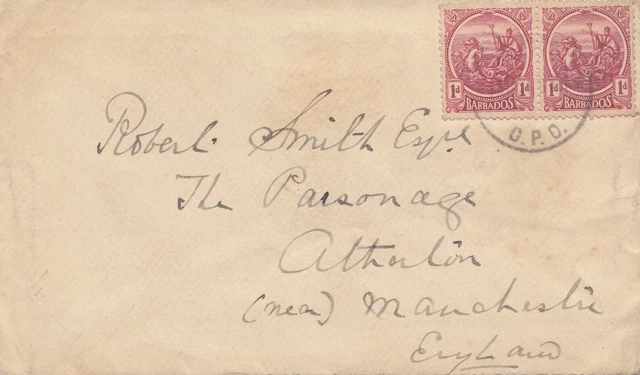 1d BARBADOS 1d 1d BARBADOS 1d
G.P.O.
Robert Smith Esqre
The Parsonage
Atherton
(near) Manchester
England